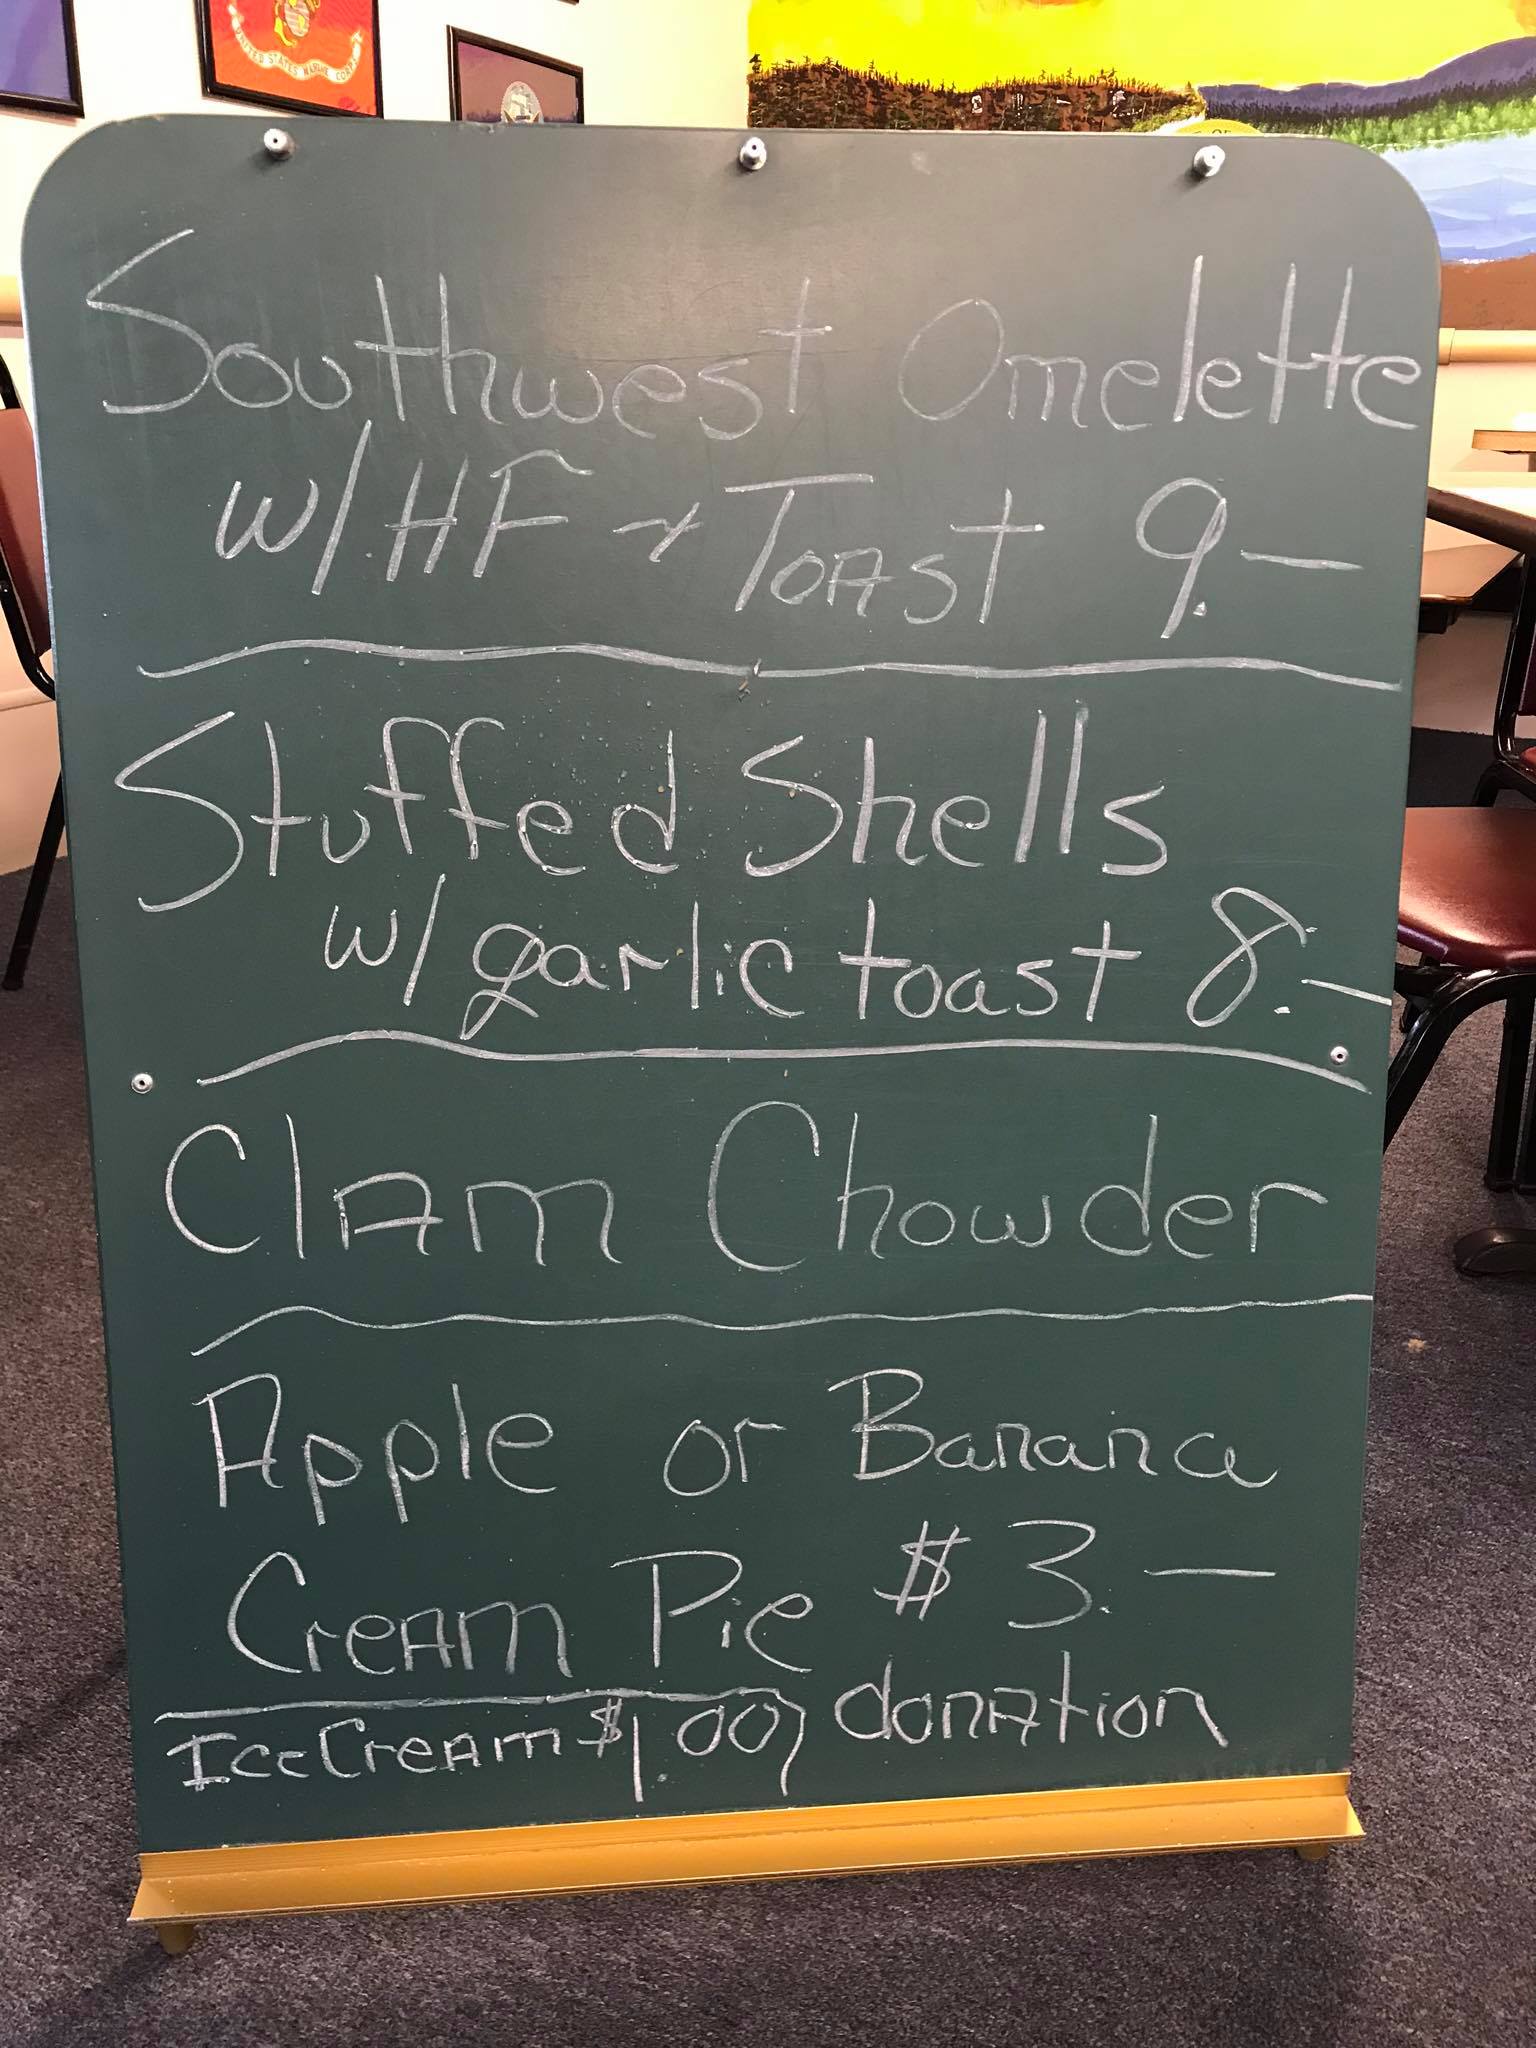 UNITED STATES MARINE CORPS
OF
Southwest Omelette
w/ HF & Toast 9.—
Stuffed Shells
w/ garlic toast 8.—
Clam Chowder
Apple or Banana
Cream Pie $3.—
Ice Cream $1.00, donation